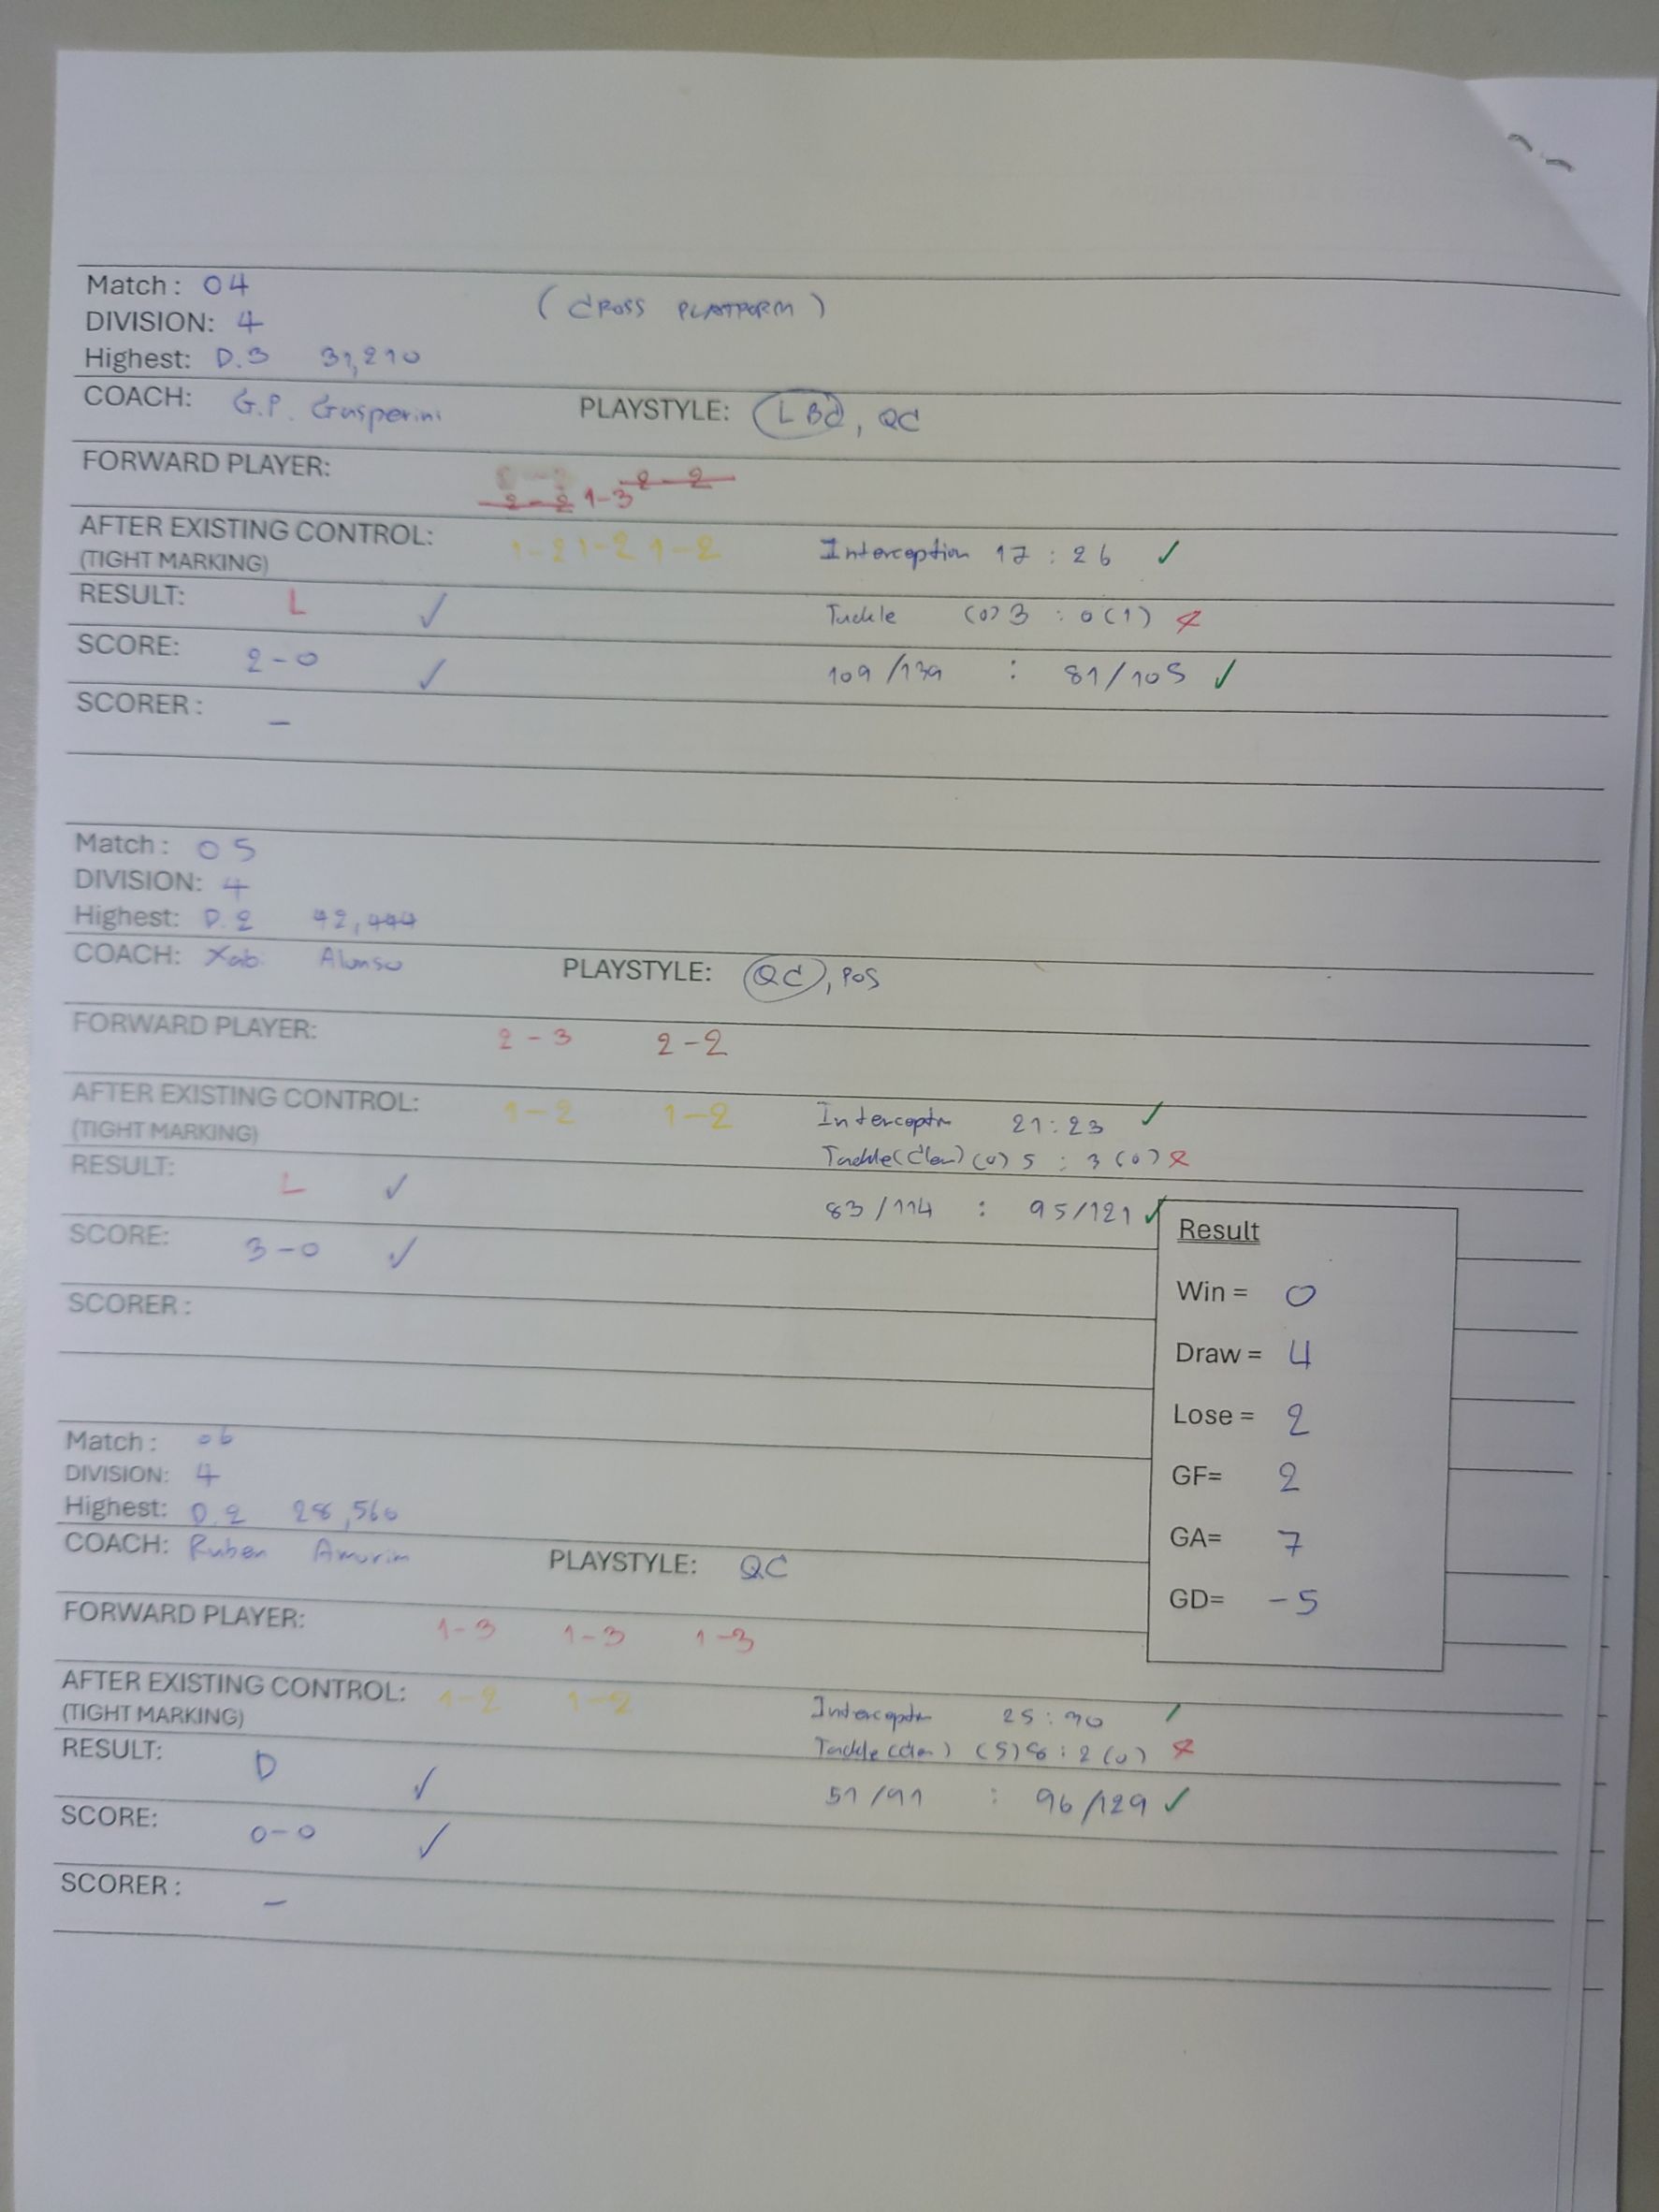 Match : 04
(CROSS PLATFORM)
DIVISION: 4
Highest: D.3 31,210
COACH: G.P. Gasperini PLAYSTYLE: LBC, QC
FORWARD PLAYER:
2-2 1-3 2-2
AFTER EXISTING CONTROL: 1-2 1-2 1-2 Interception 17 : 26 ✓
(TIGHT MARKING)
RESULT: L ✓ Tackle (0) 3 : 0 (1) ✗
SCORE: 2-0 ✓ 109/139 : 81/105 ✓
SCORER : –
Match : 05
DIVISION: 4
Highest: D.2
COACH: Xabi Alonso PLAYSTYLE: QC, POS
FORWARD PLAYER: 2-3 2-2
AFTER EXISTING CONTROL: 1-2 1-2 Interceptn 21:23 ✓
(TIGHT MARKING) (0) 5 : 3 (0) ✗
RESULT: L ✓ 83/114 : 95/121 ✓
SCORE: 3-0 ✓
SCORER :
Result
Win = 0
Draw = 4
Lose = 2
GF= 2
GA= 7
GD= -5
Match : 06
DIVISION: 4
Highest: D.2 28,560
COACH: Ruben Amorim PLAYSTYLE: QC
FORWARD PLAYER: 1-3 1-3 1-3
AFTER EXISTING CONTROL: 1-2 1-2 Interceptn 25:30 ✓
(TIGHT MARKING) (5) 8 : 2 (0) ✗
RESULT: D ✓ 51/91 : 96/129 ✓
SCORE: 0-0 ✓
SCORER : –